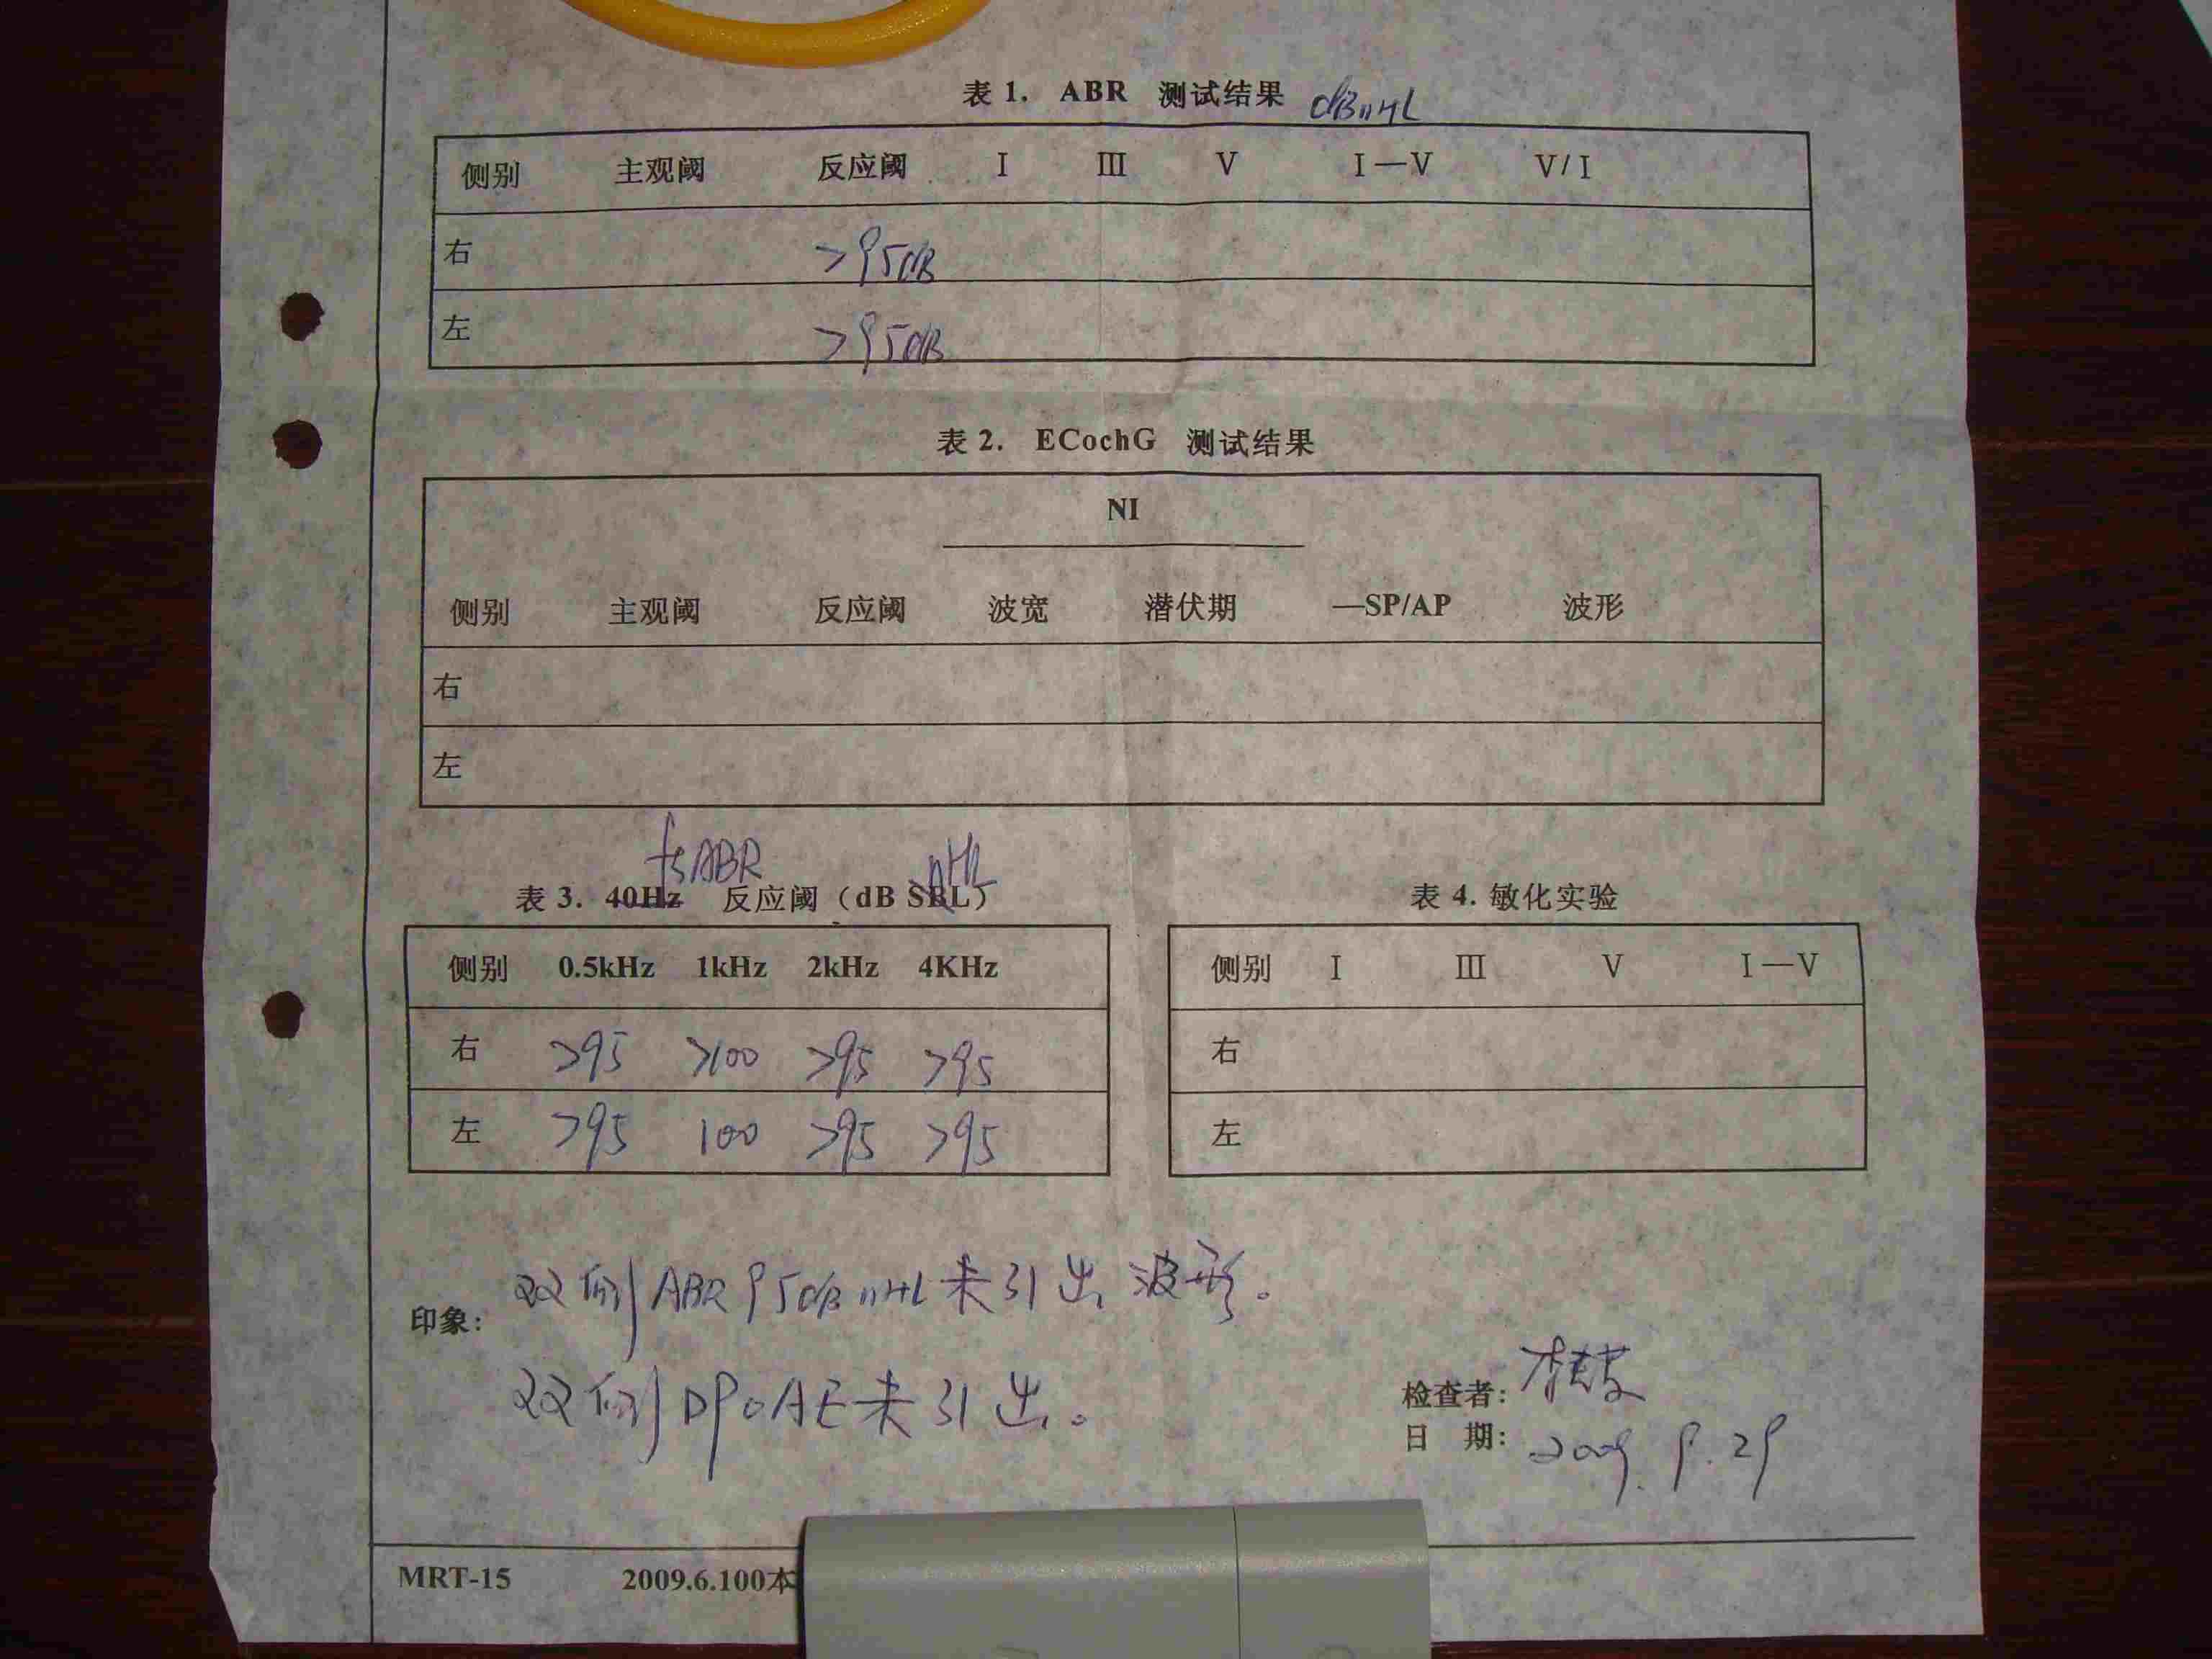 表 1. ABR 测试结果 dBnHL
侧别 主观阈 反应阈 I III V I—V V/I
右 >95dB
左 >95dB
表 2. ECochG 测试结果
NI
侧别 主观阈 反应阈 波宽 潜伏期 —SP/AP 波形
右
左
fsABR nHL
表 3. 40Hz 反应阈（dB SBL）
侧别 0.5kHz 1kHz 2kHz 4KHz
右 >95 >100 >95 >95
左 >95 100 >95 >95
表 4. 敏化实验
侧别 I III V I—V
右
左
印象：
双侧ABR 95dBnHL未引出波形。
双侧DPOAE未引出。
检查者：
日 期： 2009.9.29
MRT-15 2009.6.100本